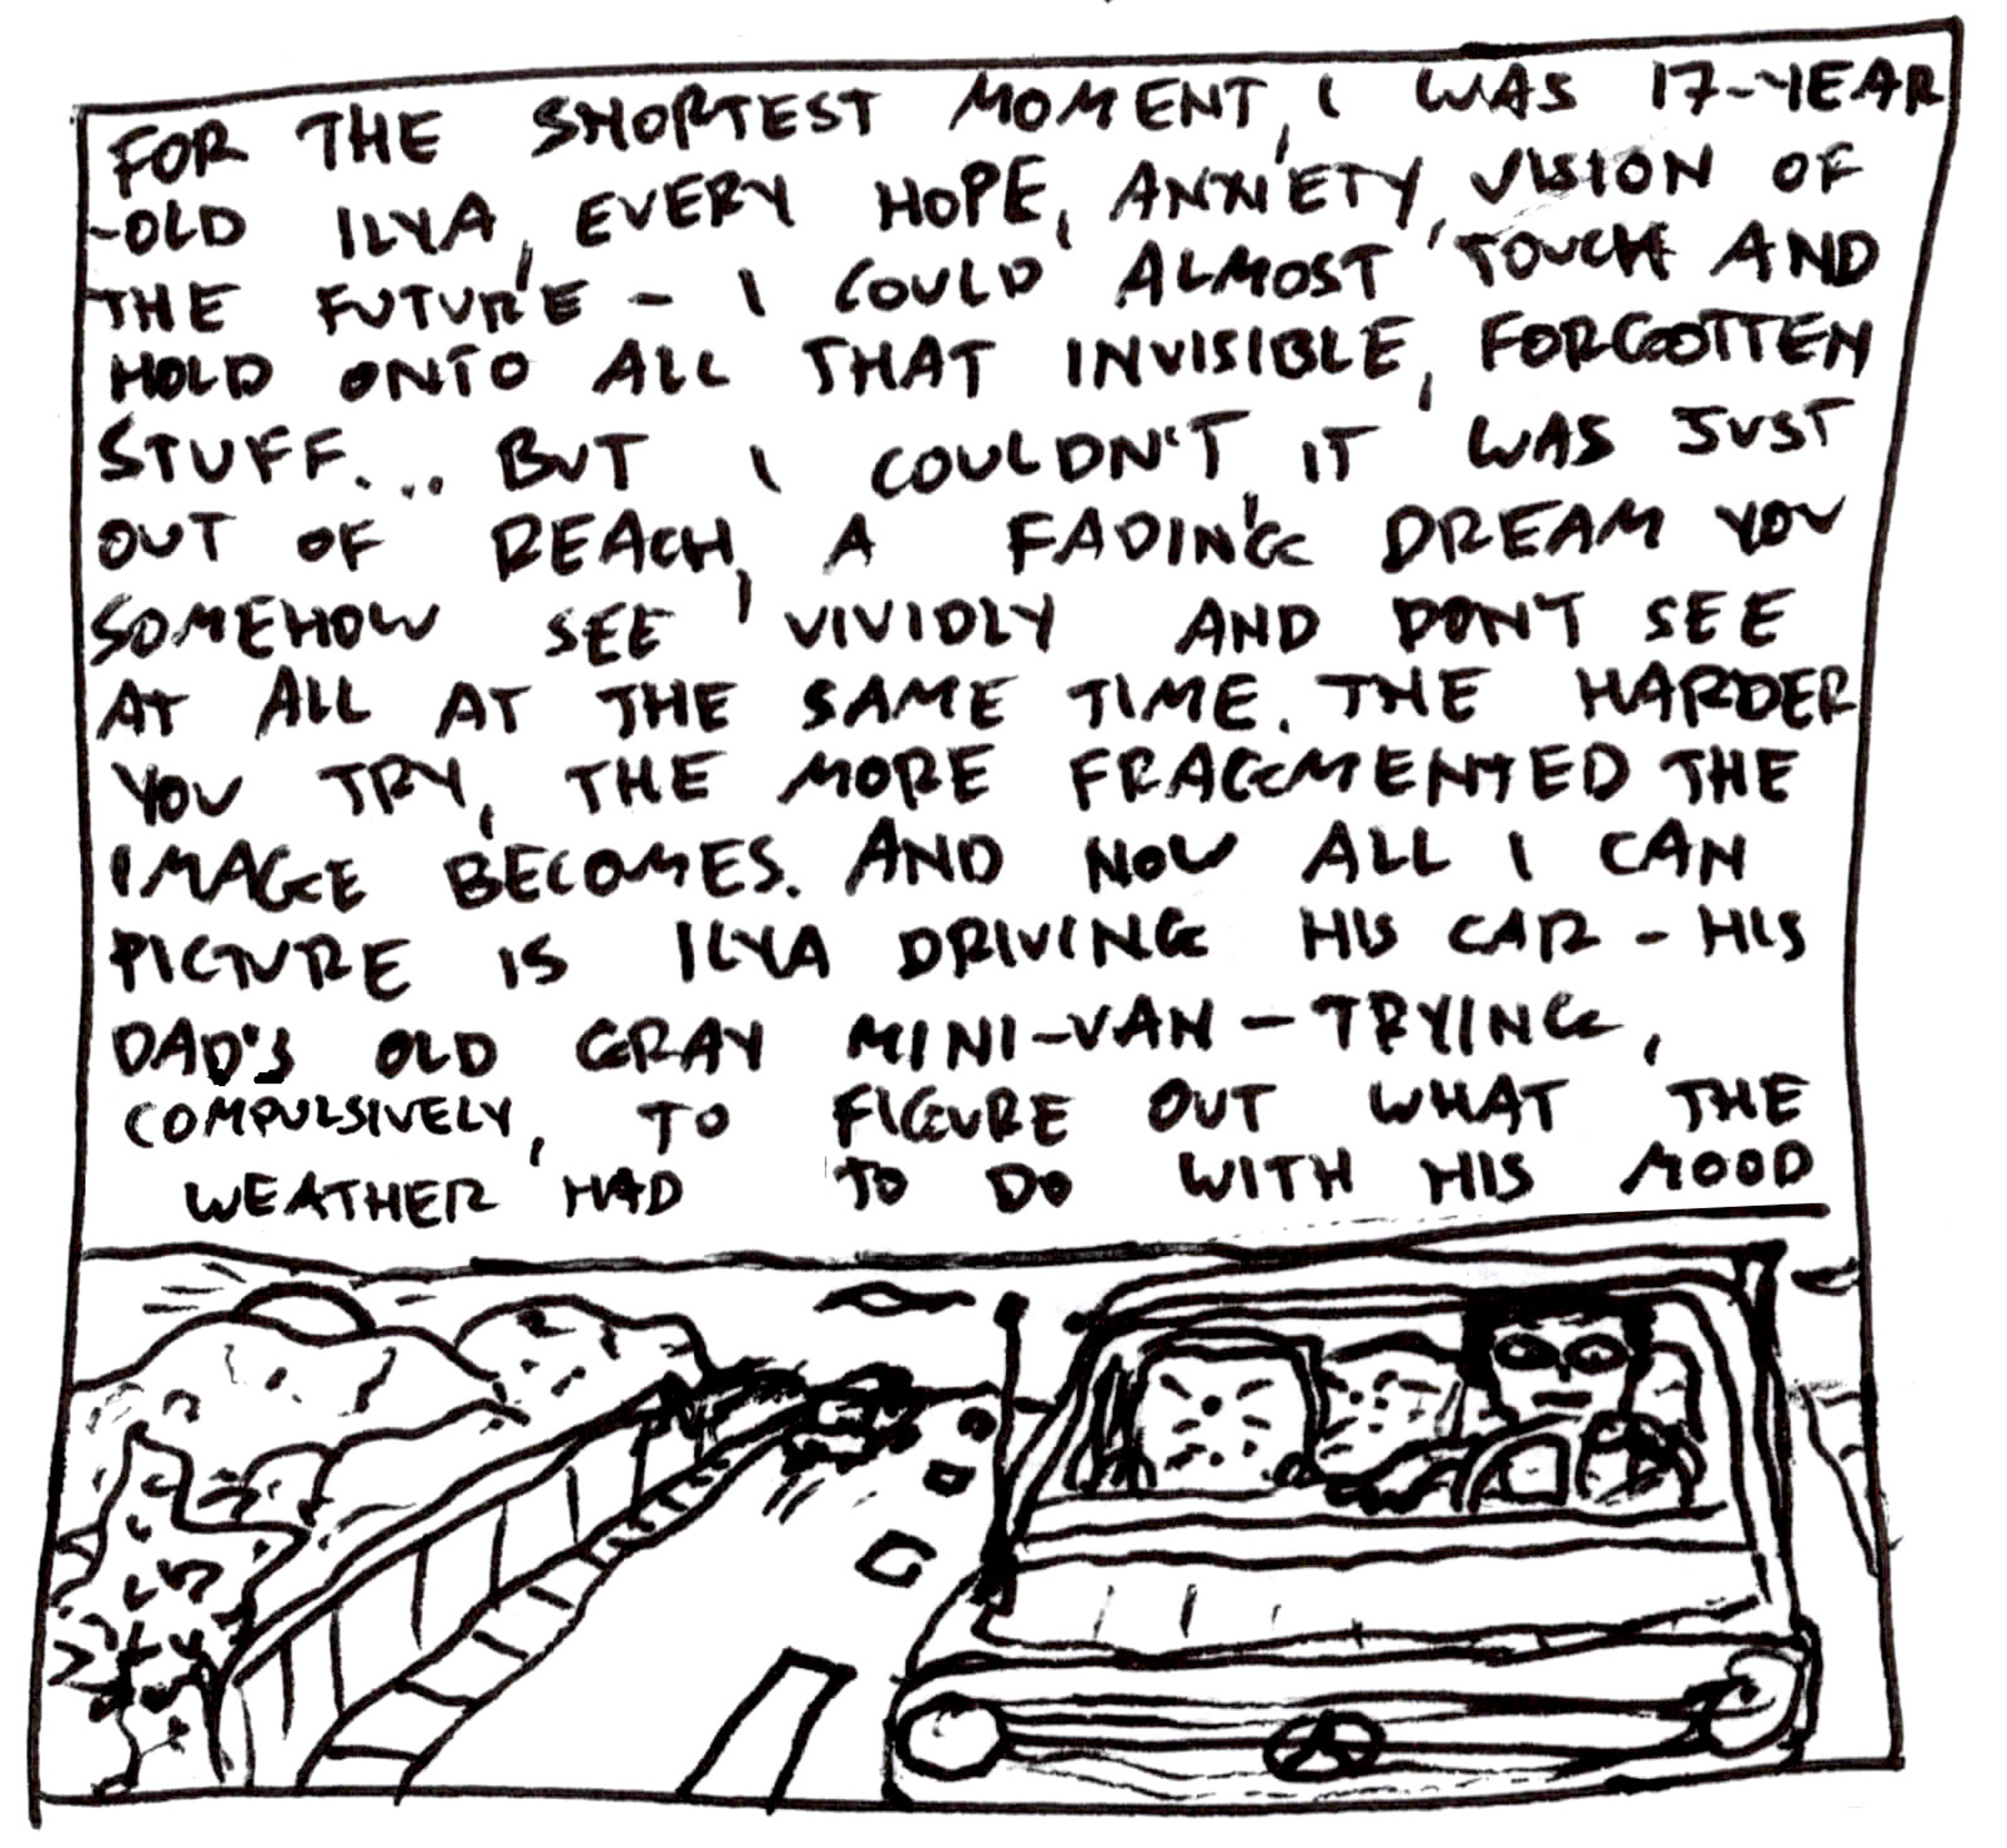 FOR THE SHORTEST MOMENT, I WAS 17-YEAR
-OLD ILYA, EVERY HOPE, ANXIETY, VISION OF
THE FUTURE - I COULD ALMOST TOUCH AND
HOLD ONTO ALL THAT INVISIBLE, FORGOTTEN
STUFF... BUT I COULDN'T, IT WAS JUST
OUT OF REACH, A FADING DREAM YOU
SOMEHOW SEE VIVIDLY AND DON'T SEE
AT ALL AT THE SAME TIME. THE HARDER
YOU TRY, THE MORE FRAGMENTED THE
IMAGE BECOMES. AND NOW ALL I CAN
PICTURE IS ILYA DRIVING HIS CAR - HIS
DAD'S OLD GRAY MINI-VAN - TRYING,
COMPULSIVELY, TO FIGURE OUT WHAT THE
WEATHER HAD TO DO WITH HIS MOOD